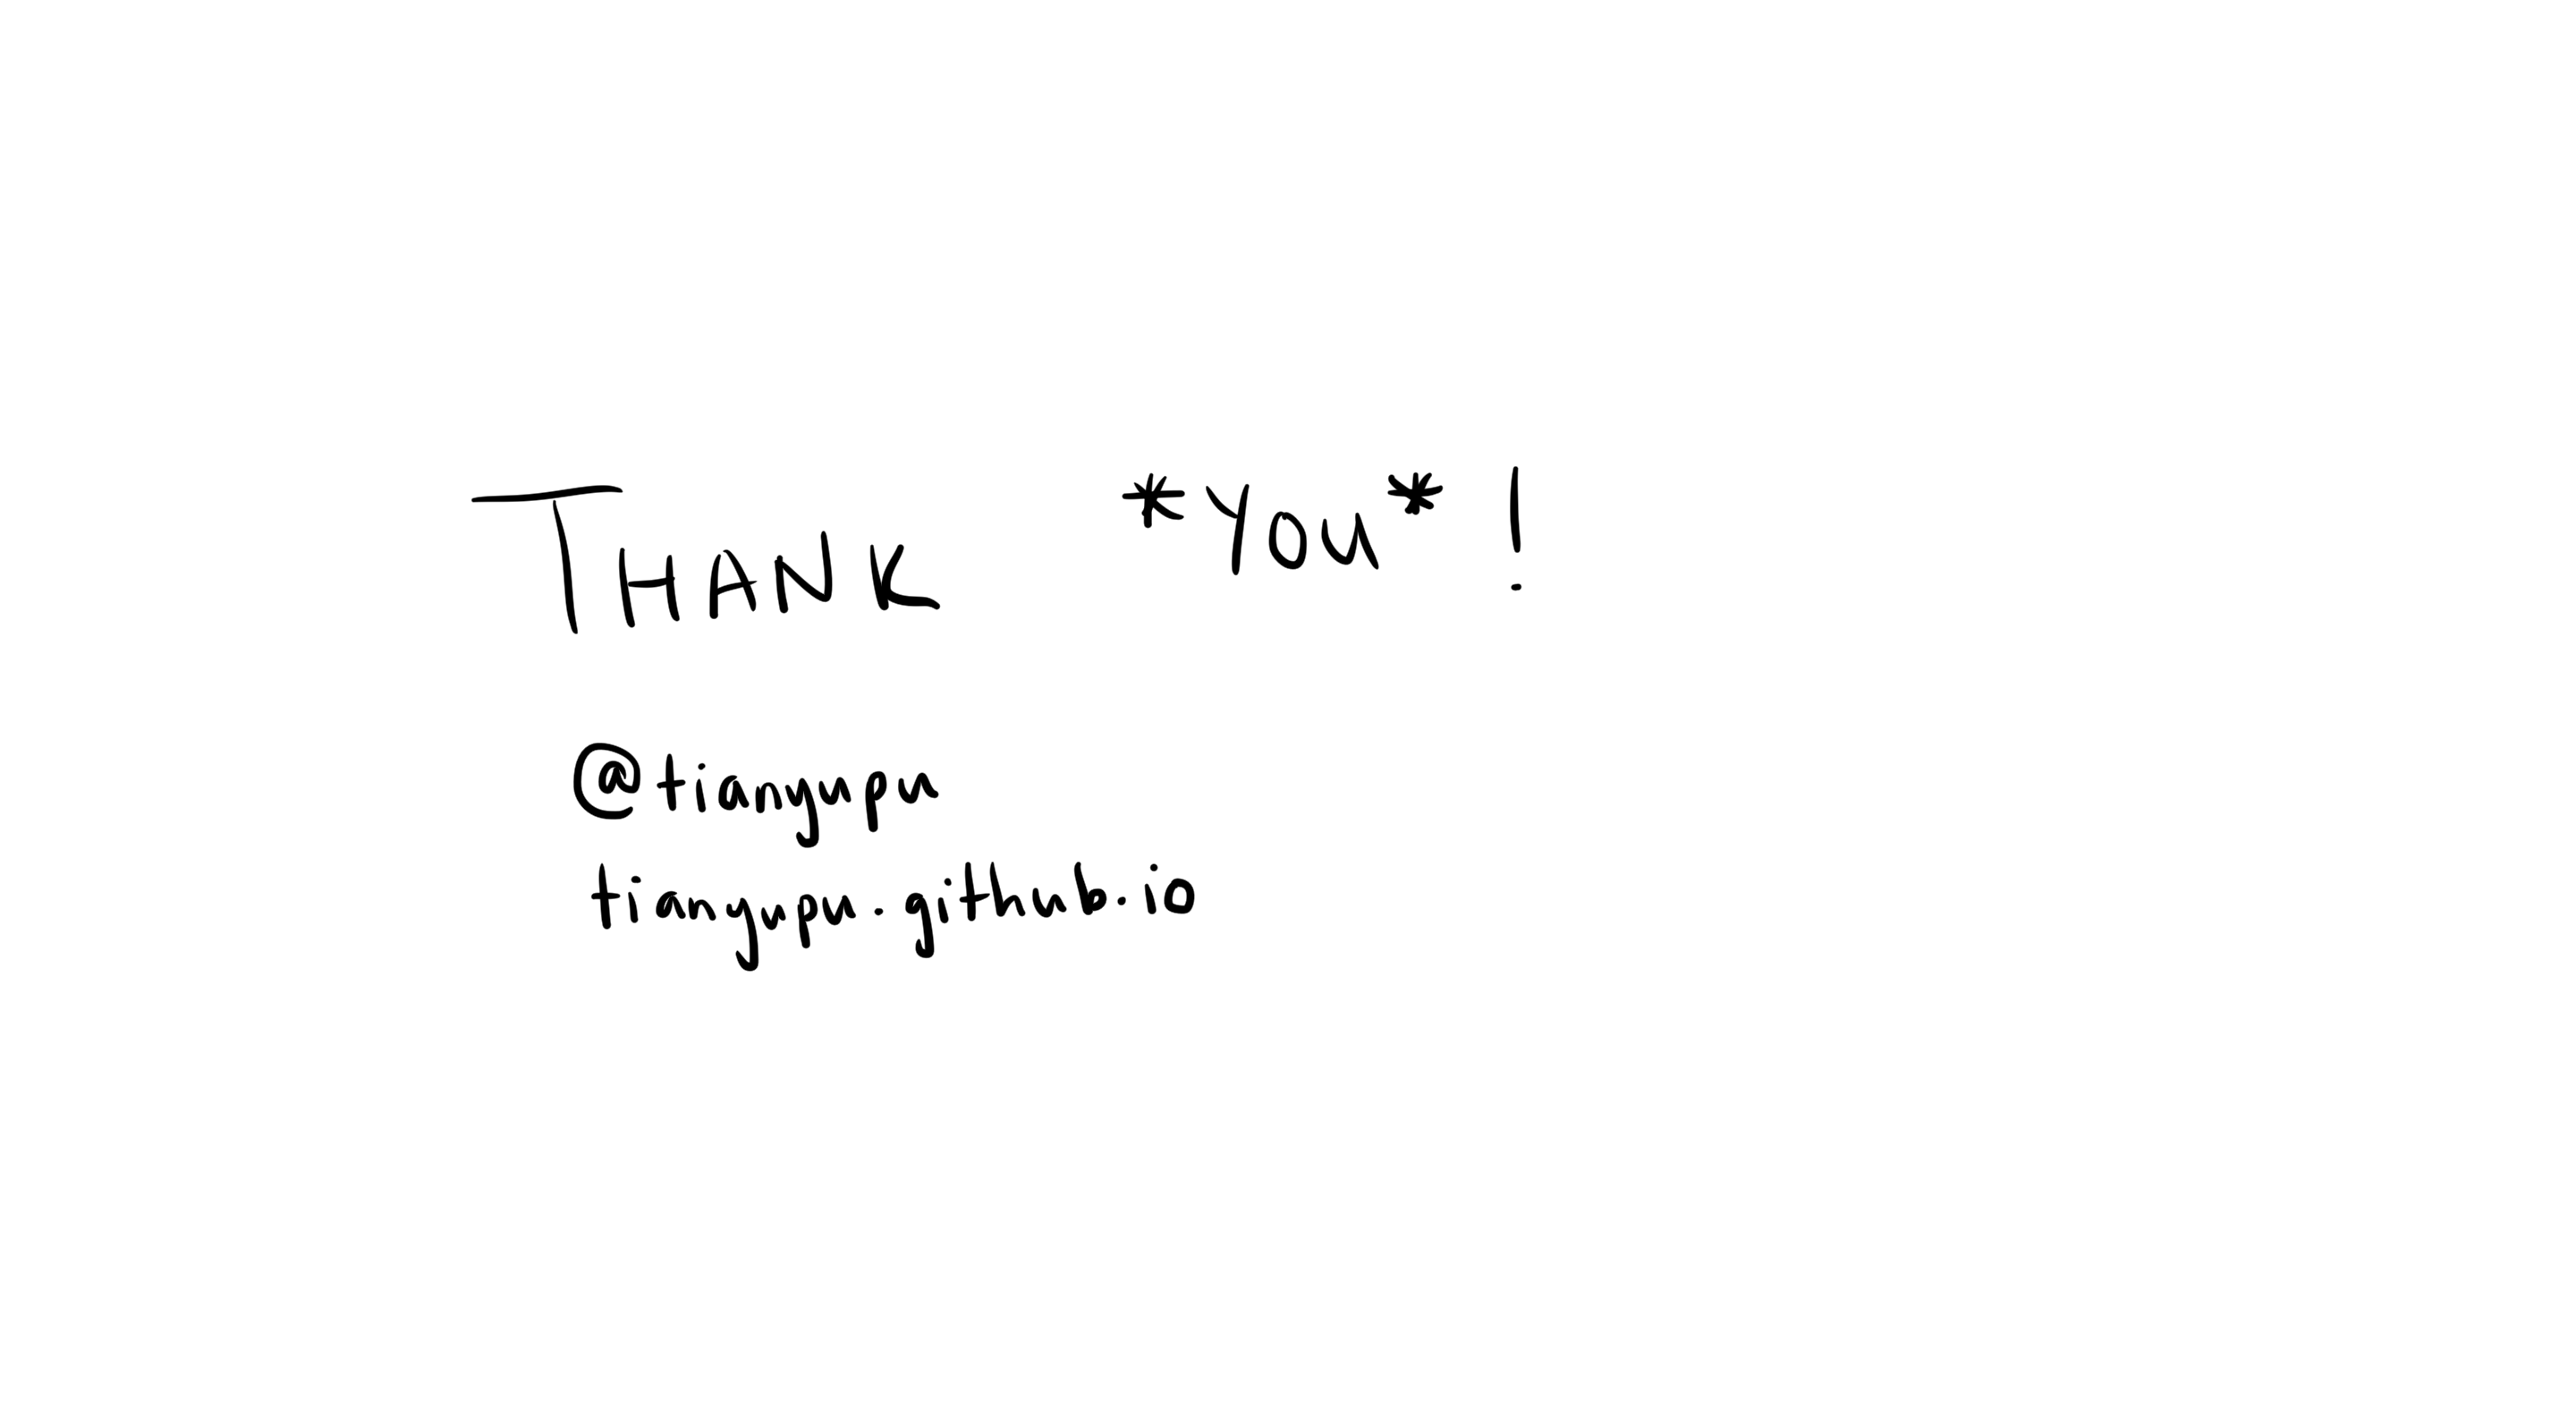 THANK *YOU* !
@tianyupu
tianyupu.github.io